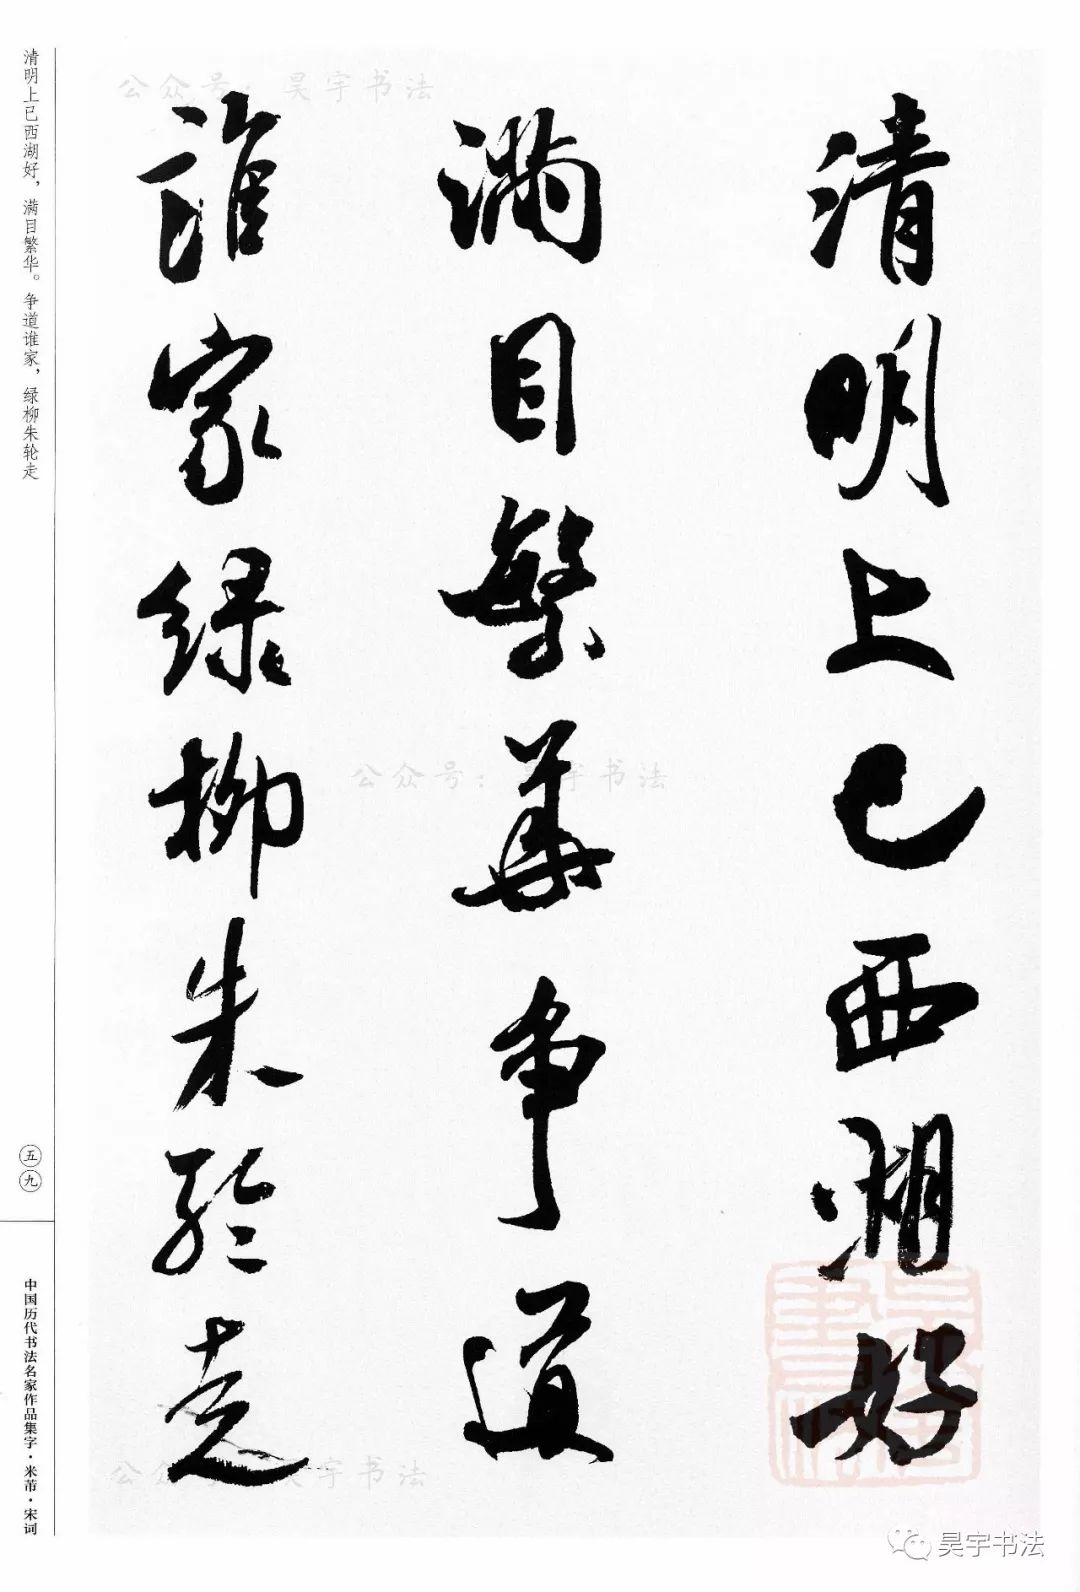 清明上巳西湖好
满目繁华争道
谁家绿柳朱轮走
清明上巳西湖好，满目繁华。争道谁家，绿柳朱轮走
五九
中国历代书法名家作品集字·米芾·宋词
公众号：昊宇书法
公众号：昊宇书法
公众号：昊宇书法
昊宇书法